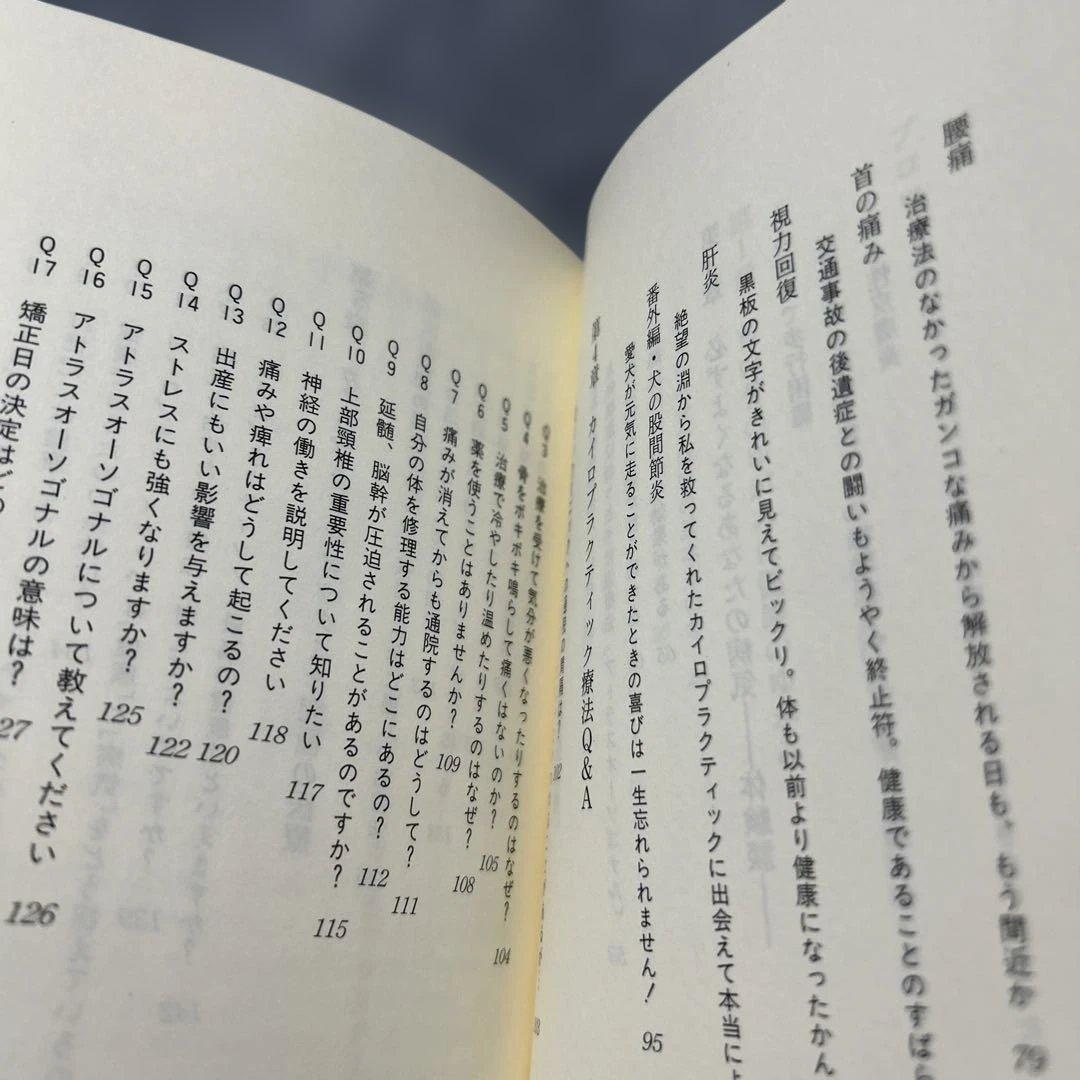 腰痛
治療法のなかったガンコな痛みから解放される日も、もう間近か 79
首の痛み
交通事故の後遺症との闘いもようやく終止符。健康であることのすばら
視力回復
黒板の文字がきれいに見えてビックリ。体も以前より健康になったかん
肝炎
絶望の淵から私を救ってくれたカイロプラクティックに出会えて本当によ
番外編・犬の股間節炎
愛犬が元気に走ることができたときの喜びは一生忘れられません! 95
第4章 カイロプラクティック療法Q&A
102
103
Q3 治療を受けて気分が悪くなったりするのはなぜ? 104
Q4 骨をボキボキ鳴らして痛くはないのか? 105
Q5 治療で冷やしたり温めたりするのはなぜ? 108
Q6 薬を使うことはありませんか? 109
Q7 痛みが消えてからも通院するのはどうして? 111
Q8 自分の体を修理する能力はどこにあるの? 112
Q9 延髄、脳幹が圧迫されることがあるのですか? 115
Q10 上部頸椎の重要性について知りたい 117
Q11 神経の働きを説明してください 118
Q12 痛みや痺れはどうして起こるの? 120
Q13 出産にもいい影響を与えますか? 122
Q14 ストレスにも強くなりますか? 125
Q15 アトラスオーソゴナルについて教えてください 126
Q16 アトラスオーソゴナルの意味は? 127
Q17 矯正日の決定はどの